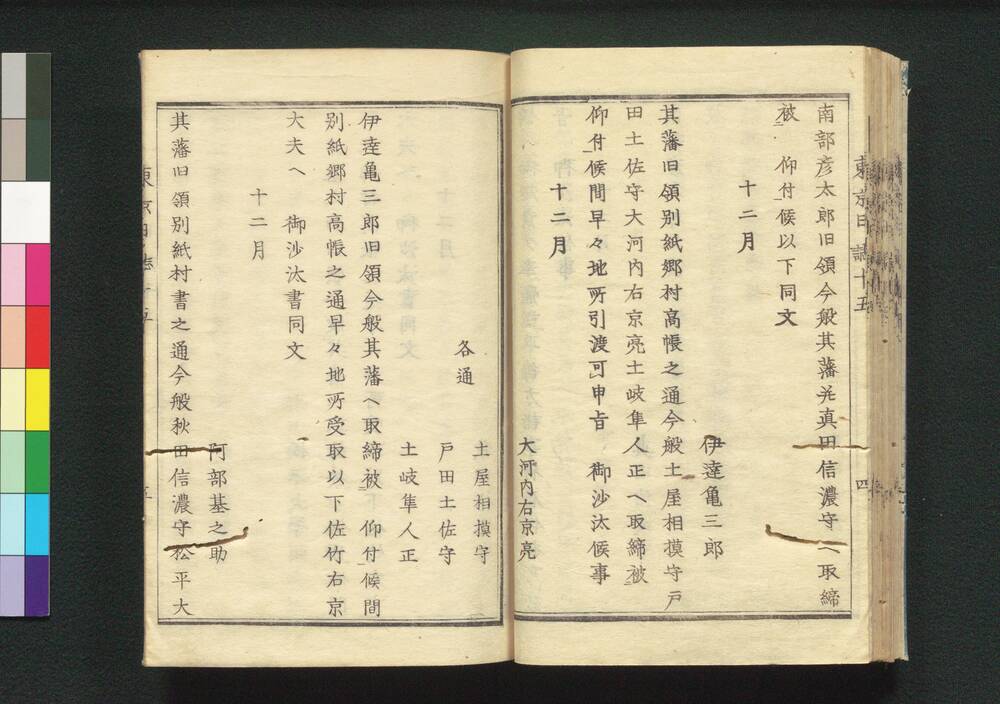 東京日誌十五
四
南部彦太郎旧領今般其藩并真田信濃守へ取締
被　仰付候以下同文
十二月
伊達亀三郎
其藩旧領別紙郷村高帳之通今般土屋相摸守戸
田土佐守大河内右京亮土岐隼人正へ取締被
仰付候間早々地所引渡可申旨　御沙汰候事
十二月
大河内右京亮
土屋相摸守
各通
戸田土佐守
土岐隼人正
伊達亀三郎旧領今般其藩へ取締被　仰付候間
別紙郷村高帳之通早々地所受取以下佐竹右京
大夫へ　御沙汰書同文
十二月
阿部基之助
其藩旧領別紙村書之通今般秋田信濃守松平大
東京日誌十五
五